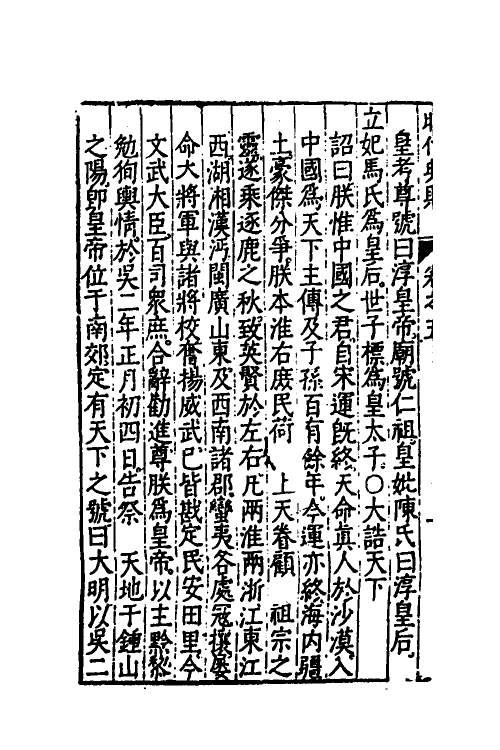 皇考尊號曰淳皇帝廟號仁祖皇妣陳氏曰淳皇后
立妃馬氏爲皇后世子標爲皇太子〇大誥天下
詔曰朕惟中國之君自宋運旣終天命眞人於沙漠入
中國爲天下主傳及子孫百有餘年今運亦終海内疆
土豪傑分爭朕本淮右庶民荷 上天眷顧 祖宗之
靈遂乘逐鹿之秋致英賢於左右凡兩淮兩浙江東江
西湖湘漢沔閩廣山東及西南諸郡蠻夷各處冦攘屢
命大將軍與諸將校奮揚威武已皆戡定民安田里今
文武大臣百司衆庶合辭勸進尊朕爲皇帝以主黔黎
勉徇輿情於吳二年正月初四日告祭 天地于鍾山
之陽卽皇帝位于南郊定有天下之號曰大明以吳二